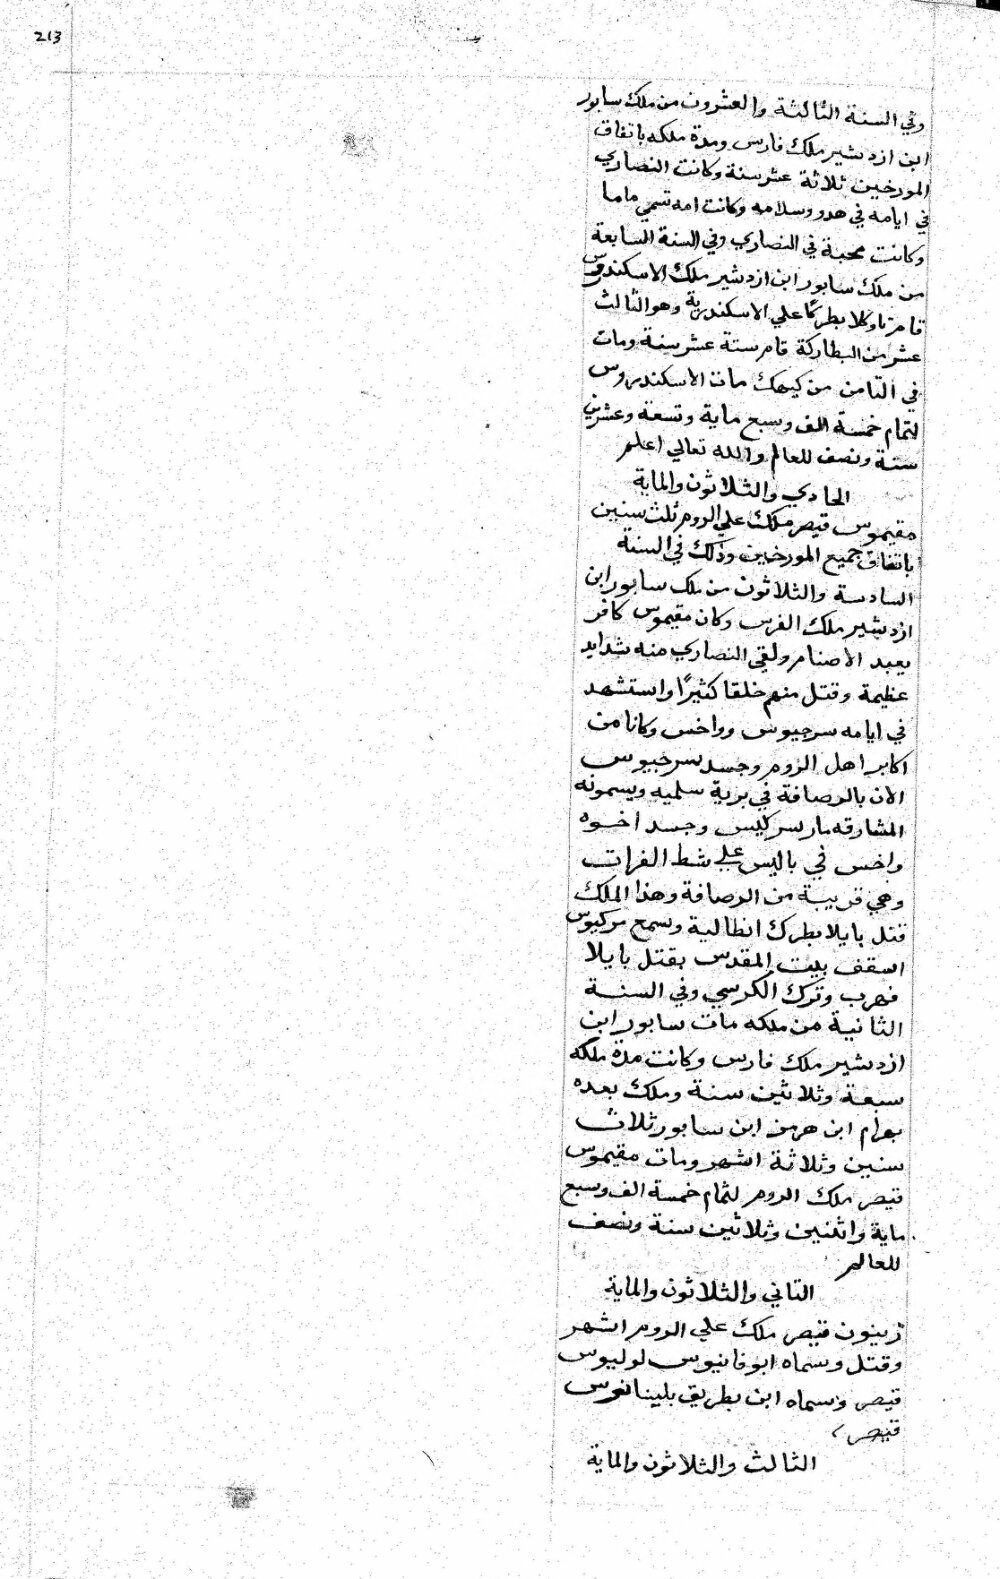 213
وفي السنة الثالثة والعشرون من ملك سابور
ابن ازدشير ملك فارس ومدة ملكه باتفاق
المورخين ثلاثة عشر سنة وكانت النصاري
في ايامه في هدو وسلامه وكانت امه تسمي ماما
وكانت محبة في النصاري وفي السنة السابعة
من ملك سابور ابن ازدشير ملك الاسكندروس
قام تاوكلا بطركًا علي الاسكندرية وهو الثالث
عشر من البطاركة قام ستة عشر سنة ومات
في الثامن من كيهك مات الاسكندروس
لتمام خمسة الف وسبع ماية وتسعة وعشرين
سنة ونصف للعالم والله تعالي اعلم
الحادي والثلاثون والماية
مقيموس قيصر ملك علي الروم ثلث سنين
باتفاق جميع المورخين وذلك في السنة
السادسة والثلاثون من ملك سابور ابن
ازدشير ملك الفرس وكان مقيموس كافر
يعبد الاصنام ولقي النصاري منه شدايد
عظيمة وقتل منهم خلقا كثيرًا واستشهد
في ايامه سرجيوس وواخس وكانا من
اكابر اهل الروم وجسد سرجيوس
الان بالرصافة في برية سلميه ويسمونه
المشارقه مار سركيس وجسد اخوه
واخس في باليس علي شط الفرات
وهي قريبة من الرصافة وهذا الملك
قتل بابيلا بطرك انطاكية وسمع مركيوس
اسقف بيت المقدس بقتل بابيلا
فهرب وترك الكرسي وفي السنة
الثانية من ملكه مات سابور ابن
ازدشير ملك فارس وكانت مدة ملكه
سبعة وثلاثين سنة وملك بعده
بهرام ابن هرمز ابن سابور ثلاث
سنين وثلاثة اشهر ومات مقيموس
قيصر ملك الروم لتمام خمسة الف وسبع
ماية واثنين وثلاثين سنة ونصف
للعالم
الثاني والثلاثون والماية
زينون قيصر ملك علي الروم اشهر
وقتل وسماه ابوفانيوس لوليوس
قيصر وسماه ابن بطريق بلينانوس
قيصر
الثالث والثلاثون والماية